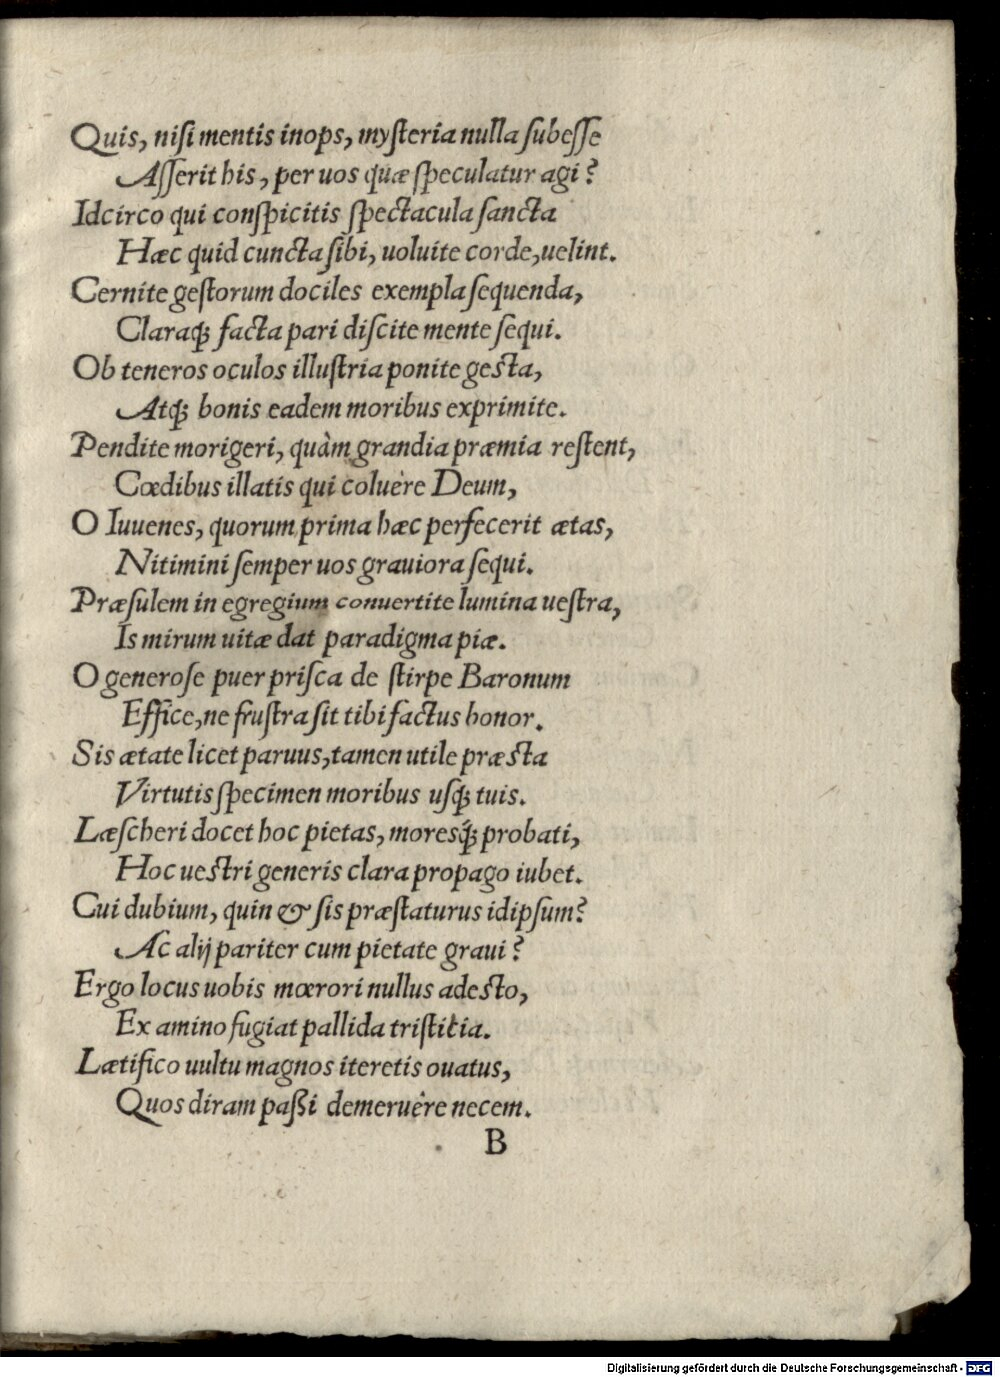 Quis, niſi mentis inops, myſteria nulla ſubeſſe
Aſſerit his, per uos quæ ſpeculatur agi?
Idcirco qui conſpicitis ſpectacula ſancta
Hæc quid cuncta ſibi, uoluite corde, uelint.
Cernite geſtorum dociles exempla ſequenda,
Claraqꝫ facta pari diſcite mente ſequi.
Ob teneros oculos illuſtria ponite geſta,
Atqꝫ bonis eadem moribus exprimite.
Pendite morigeri, quàm grandia præmia reſtent,
Cœdibus illatis qui coluère Deum,
O Iuuenes, quorum prima hæc perfecerit ætas,
Nitimini ſemper uos grauiora ſequi.
Præſulem in egregium conuertite lumina ueſtra,
Is mirum uitæ dat paradigma piæ.
O generoſe puer priſca de ſtirpe Baronum
Effice, ne fruſtra ſit tibi factus honor.
Sis ætate licet paruus, tamen utile præſta
Virtutis ſpecimen moribus uſqꝫ tuis.
Læſcheri docet hoc pietas, moresq́ꝫ probati,
Hoc ueſtri generis clara propago iubet.
Cui dubium, quin & ſis præſtaturus idipſum?
Ac alij pariter cum pietate graui?
Ergo locus uobis mœrori nullus adeſto,
Ex amino fugiat pallida triſtitia.
Lætifico uultu magnos iteretis ouatus,
Quos diram paßi demeruère necem.
B
Digitalisierung gefördert durch die Deutsche Forschungsgemeinschaft - DFG